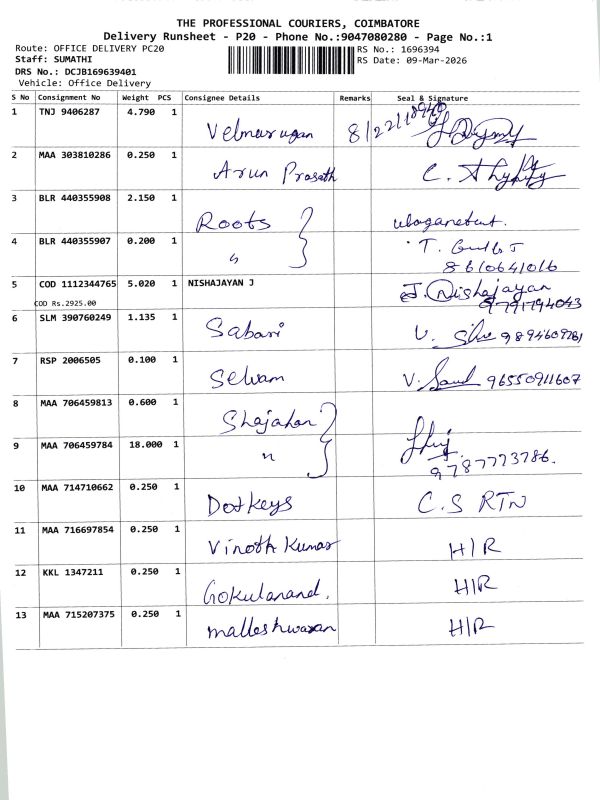 THE PROFESSIONAL COURIERS, COIMBATORE
Delivery Runsheet - P20 - Phone No.:9047080280 - Page No.:1
Route: OFFICE DELIVERY PC20
RS No.: 1696394
Staff: SUMATHI
RS Date: 09-Mar-2026
DRS No.: DCJB169639401
Vehicle: Office Delivery
S No Consignment No Weight PCS Consignee Details Remarks Seal & Signature
1 TNJ 9406287 4.790 1 Velmurugan
2 MAA 303810286 0.250 1 Arun Prasath
3 BLR 440355908 2.150 1 Roots
4 BLR 440355907 0.200 1 " T.
8610641016
5 COD 1112344765 5.020 1 NISHAJAYAN J J. Nishajayan
COD Rs.2925.00 9791794043
6 SLM 390760249 1.135 1 Sabari V.
7 RSP 2006505 0.100 1 Selvam V. 96550911607
8 MAA 706459813 0.600 1 Shajahan
9 MAA 706459784 18.000 1 "
9787773786.
10 MAA 714710662 0.250 1 Dotkeys C.S RTN
11 MAA 716697854 0.250 1 Vinoth Kumar H/R
12 KKL 1347211 0.250 1 Gokulanand. H/R
13 MAA 715207375 0.250 1 malleshwaran H/R